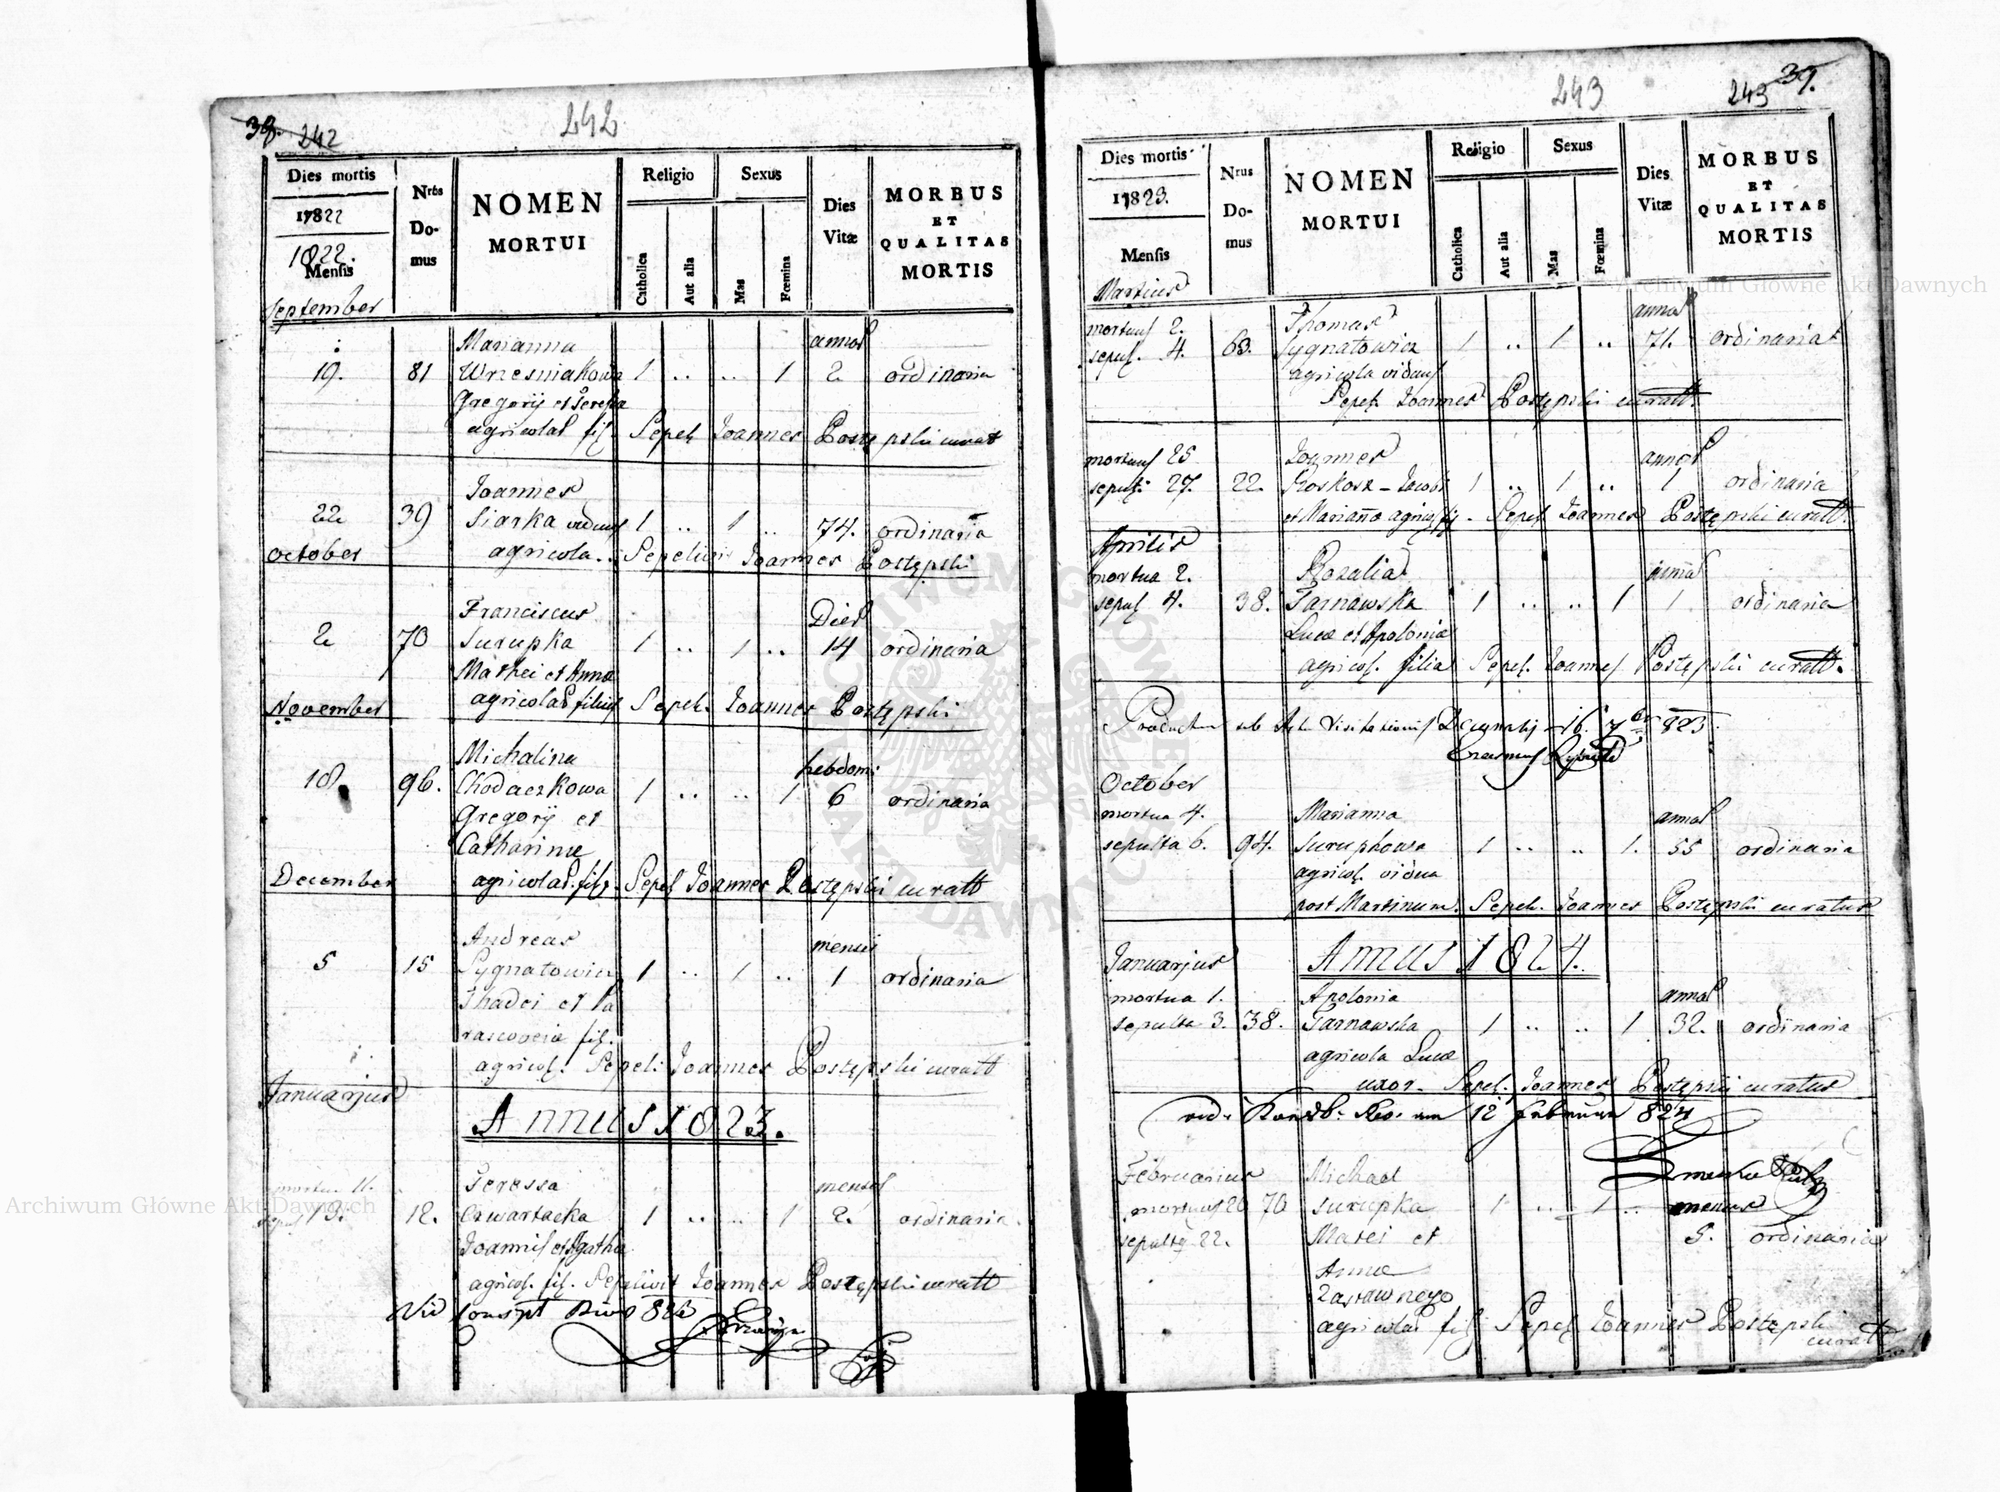 38. 242
242
Dies mortis
17822
1822.
Mensis
September
Nrus
Do-
mus
NOMEN
MORTUI
Religio
Catholica
Aut alia
Sexus
Mas
Fœmina
Dies
Vitæ
MORBUS
ET
QUALITAS
MORTIS
Marianna annos
19. 81 Wrzesniakowa 1 .. .. 1 2 ordinaria
Gregorij et Teressa
agricolas fil. Sepel Joannes Postępski curat
Joannes
22 39 Siarka viduus 1 .. 1 .. 74. ordinaria
October agricola.. Sepelivit Joannes Postępski
Franciscus Dies
2 70 Surupka 1 .. 1 .. 14 ordinaria
Mathei et Anna
November agricolas filius Sepel. Joannes Postępski
Michalina hebdom:
18. 96. Chodaczkowa 1 .. .. 1 6 ordinaria
Gregorij et
Catharinæ
December agricolas. fil. Sepel Joannes Postępski curatt
Andreas mensis
5 15 Sygnatowicz 1 .. 1 .. 1 ordinaria
Thadei et Pa
rascovia fil.
agricol. Sepel: Joannes Postępski curatt
Januarjus
Annus 1823.
mortua 11. Teressa menses
sepul 13. 12. Czwartacka 1 .. .. 1 2. ordinaria.
Joannis et Agatha
agricol. fil. Sepelivit Joannes Postępski curatt
243
243 39.
Dies mortis
17823.
Mensis
Martius
Nrus
Do-
mus
NOMEN
MORTUI
Religio
Catholica
Aut alia
Sexus
Mas
Fœmina
Dies
Vitæ
MORBUS
ET
QUALITAS
MORTIS
mortuus 2. Thomas annos
sepul. 4. 63. Sygnatowicz 1 .. 1 .. 71. ordinaria
agricola viduus
Sepel. Joannes Postępski curatt.
mortuus 25 Joannes annos
sepult: 27. 22. Koskosz - Jacobi 1 .. 1 .. 1 ordinaria
et Marianna agricol fil. Sepel. Joannes Postępski curatt.
Aprilis
mortua 2. Rozalia annus
sepul 4. 38. Tarnawska 1 .. .. 1 1 ordinaria
Lucæ et Apolonia
agricol. filia Sepel. Joannes Postępski curatt.
October
mortua 4. Marianna annos
sepulta 6. 94. Surupkowa 1 .. .. 1. 55 ordinaria
agricol. vidua
post Martinum. Sepel. Joannes Postępski curatus
Januarjus Annus 1824.
mortua 1. Apolonia annos
sepulta 3. 38. Tarnawska 1 .. .. 1 32. ordinaria
agricola Lucæ
uxor. Sepel. Joannes Postępski curatus
Februarius Michael
mortuus 20 70 Surupka 1 .. 1 .. menses
sepultq 22. Matei et 5. ordinaria
Annæ
Zastawnego
agricolas fil Sepel Joannes Postępski
curatt
Archiwum Główne Akt Dawnych
Archiwum Główne Akt Dawnych
ARCHIWUM GŁÓWNE AKT DAWNYCH